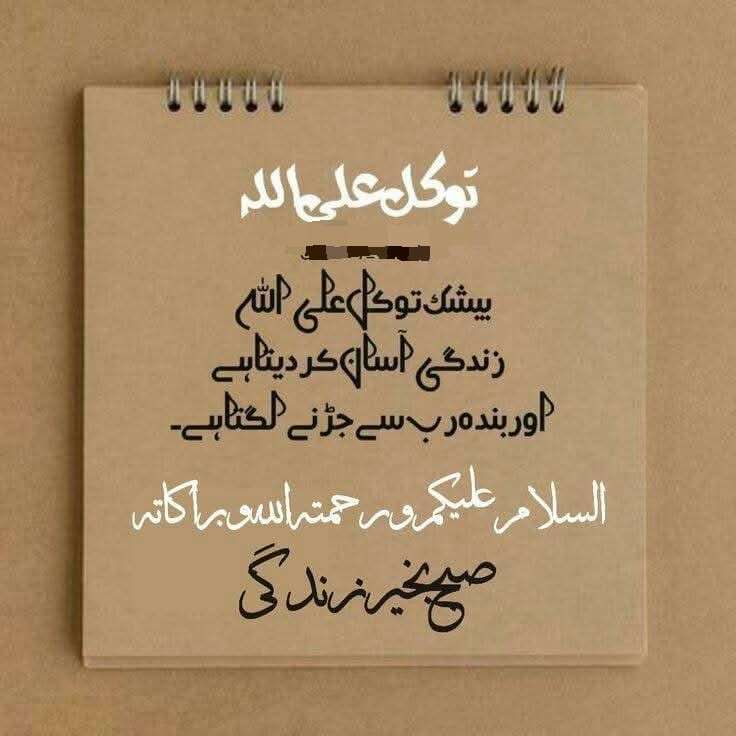 توکل علی اللہ
بیشک توکل علی اللہ
زندگی آسان کر دیتا ہے
اور بندہ رب سے جڑنے لگتا ہے۔
السلام علیکم ورحمتہ اللہ وبرکاتہ
صبح بخیر زندگی